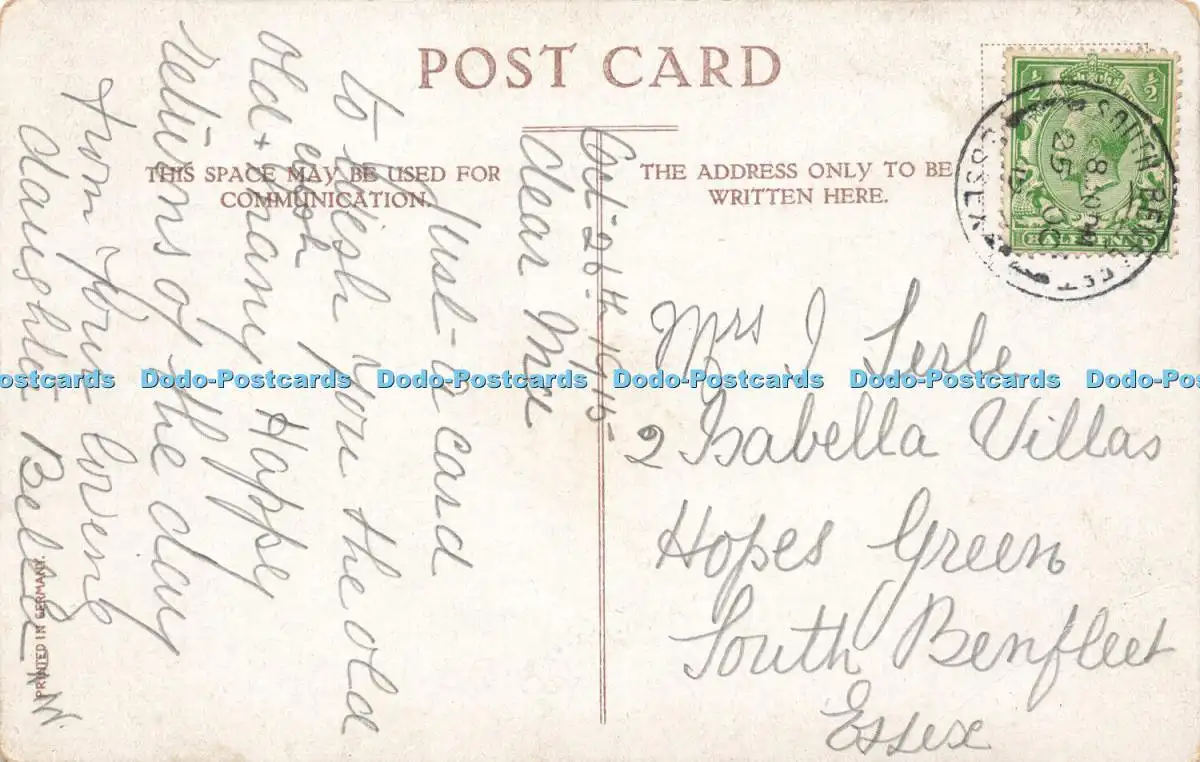 POST CARD
THIS SPACE MAY BE USED FOR
COMMUNICATION.
THE ADDRESS ONLY TO BE
WRITTEN HERE.
Oct 26th 1915
dear Ma
Just a card
to wish you the old
old wish
+ many Happy
returns of the day
from Your loving
daughter
PRINTED IN GERMANY.
½ ½
HALFPENNY
SOUTH BENFLEET
ESSEX
25 OC
Mrs J
2 Isabella Villas
Hopes Green
South Benfleet
Essex
Dodo-Postcards Dodo-Postcards Dodo-Postcards Dodo-Postcards Dodo-Postcards